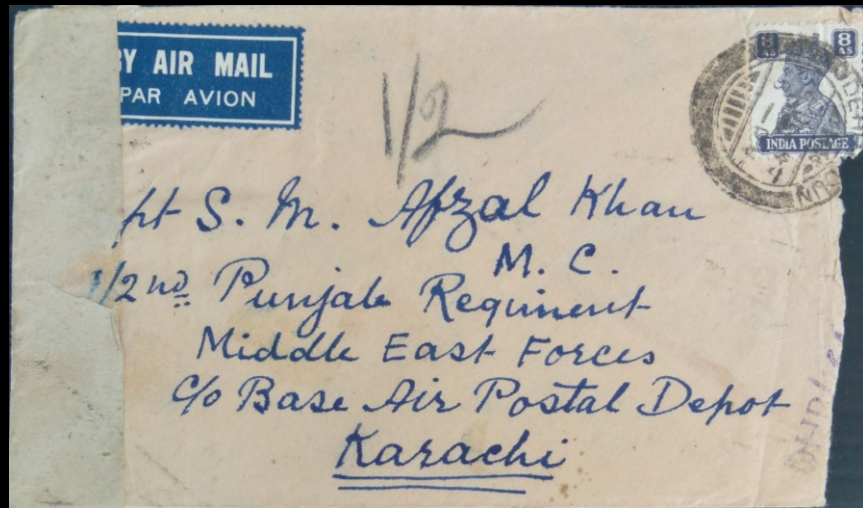 BY AIR MAIL
PAR AVION
1/2
8
AS
8
AS
INDIA POSTAGE
pt S. M. Afzal Khan
M. C.
1/2nd Punjab Regiment
Middle East Forces
c/o Base Air Postal Depot
Karachi